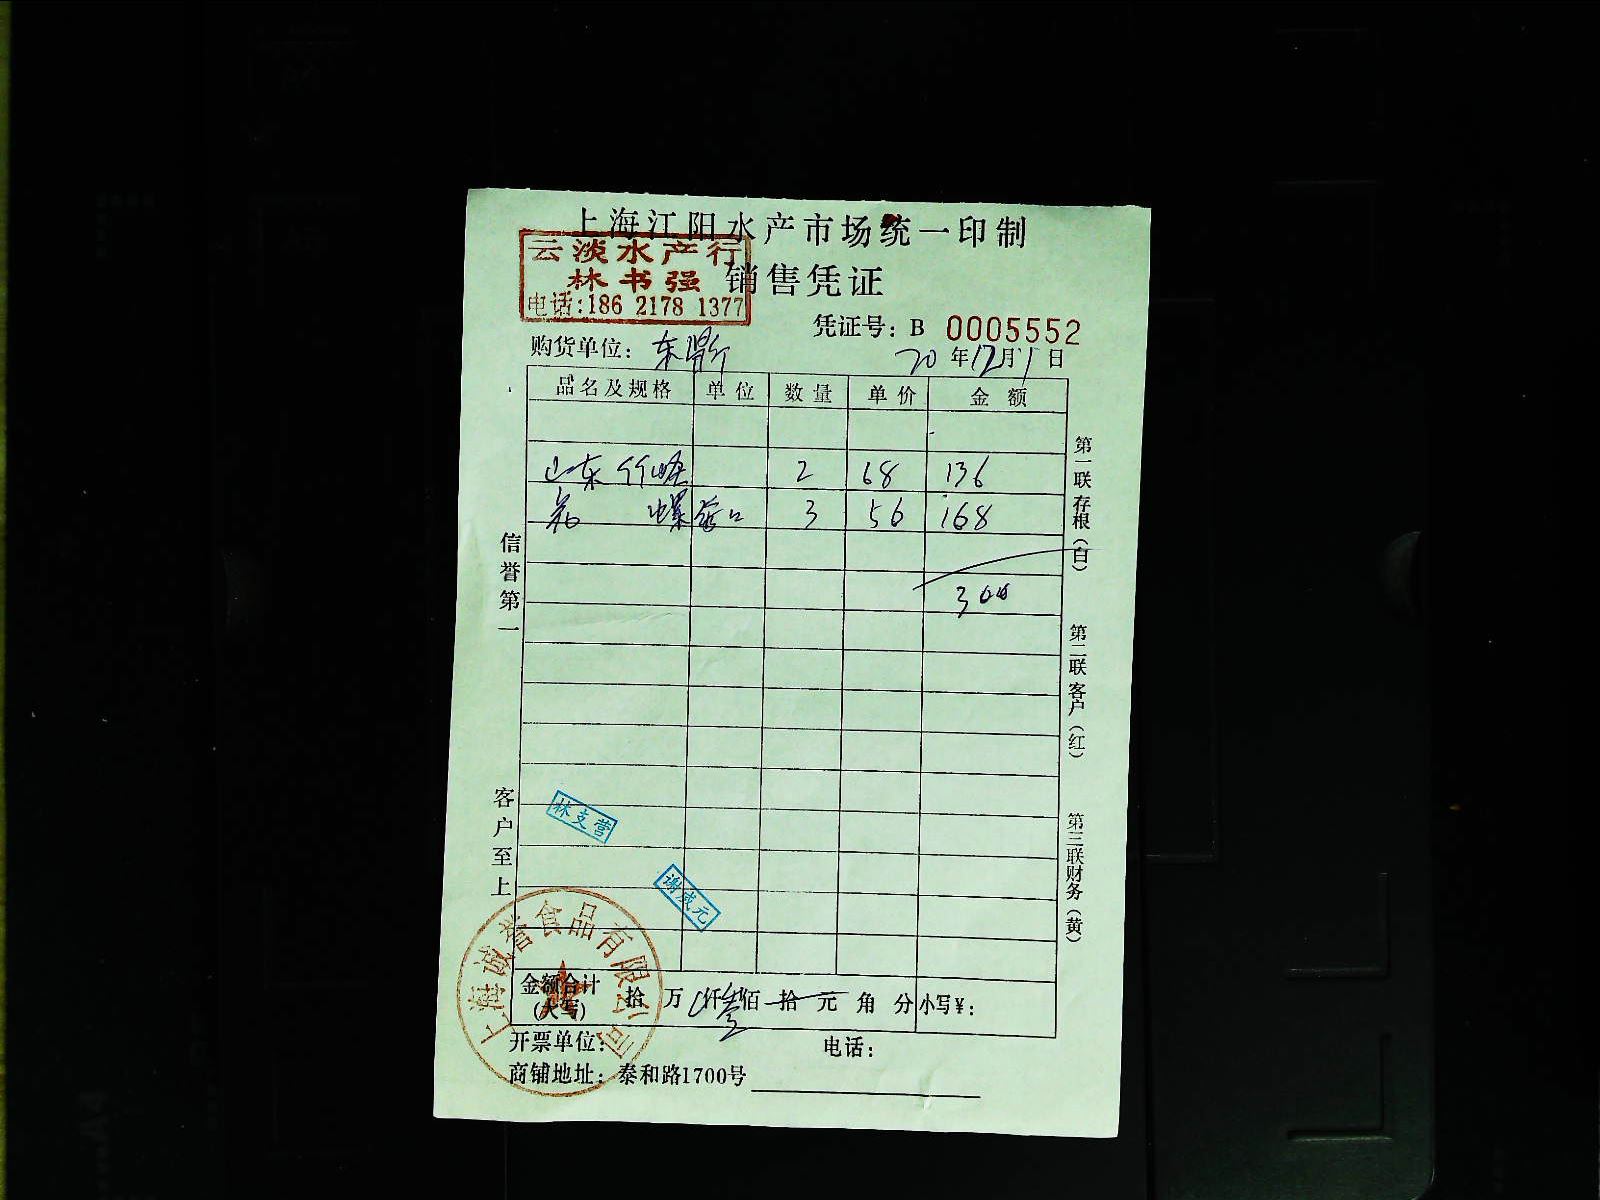 上海江阳水产市场统一印制
云淡水产行
林书强
电话:186 2178 1377
销售凭证
凭证号: B 0005552
购货单位: 东
20年12月1日
品名及规格 单位 数量 单价 金额
山东 2 68 136
螺 3 56 168
300
信誉第一
客户至上
第一联存根(白)
第二联客户(红)
第三联财务(黄)
林支营
谢成元
上海诚誉食品有限公司
金额合计(大写) 拾 万 仟叁佰 拾 元 角 分 小写¥:
开票单位: 电话:
商铺地址: 泰和路1700号